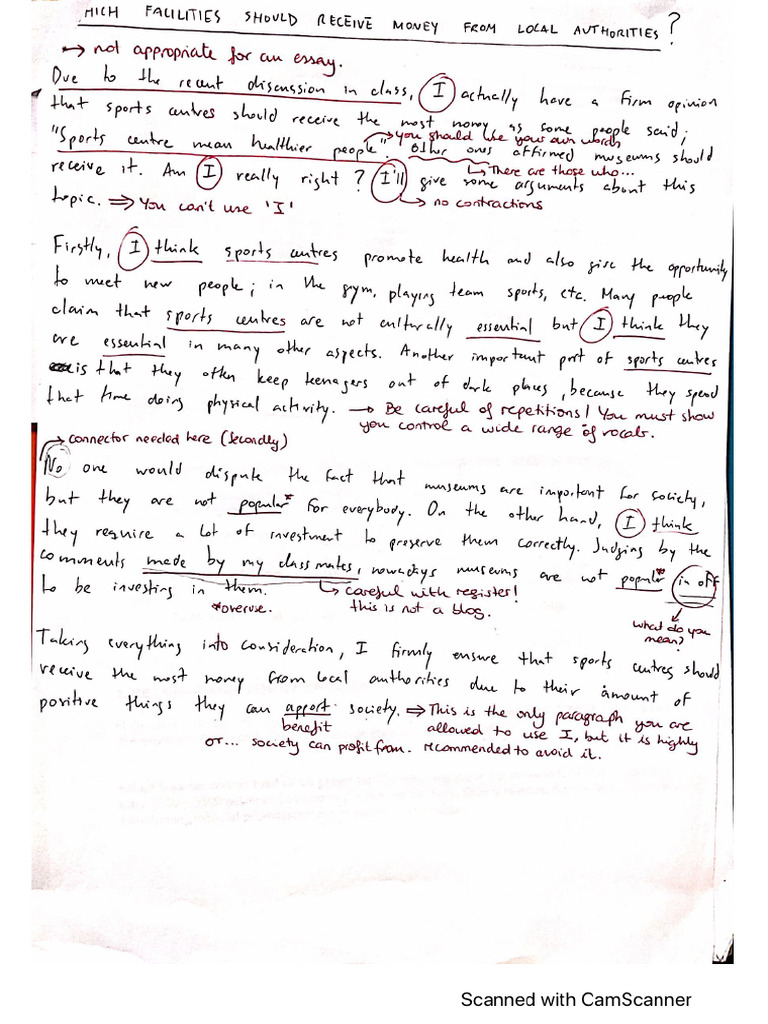 HICH FACILITIES SHOULD RECEIVE MONEY FROM LOCAL AUTHORITIES?
→ not appropriate for an essay.
Due to the recent discussion in class, I actually have a firm opinion
that sports centres should receive the most money as some people said;
→ you should use your own words
"Sports centre mean healthier people". Other ones affirmed museums should
→ There are those who...
receive it. Am I really right? I'll give some arguments about this
topic. ⇒ You can't use 'I' → no contractions
Firstly, I think sports centres promote health and also give the opportunity
to meet new people; in the gym, playing team sports, etc. Many people
claim that sports centres are not culturally essential but I think they
are essential in many other aspects. Another important part of sports centres
is that they often keep teenagers out of dark places, because they spend
that time doing physical activity. → Be careful of repetitions! You must show
you control a wide range of vocab.
→ connector needed here (Secondly)
No one would dispute the fact that museums are important for society,
but they are not popular* for everybody. On the other hand, I think
they require a lot of investment to preserve them correctly. Judging by the
comments made by my classmates, nowadays museums are not popular* in off
to be investing in them. → careful with register!
*overuse. this is not a blog.
what do you
mean?
Taking everything into consideration, I firmly ensure that sports centres should
receive the most money from local authorities due to their amount of
positive things they can apport society. ⇒ This is the only paragraph you are
benefit allowed to use I, but it is highly
or... society can profit from. recommended to avoid it.
Scanned with CamScanner